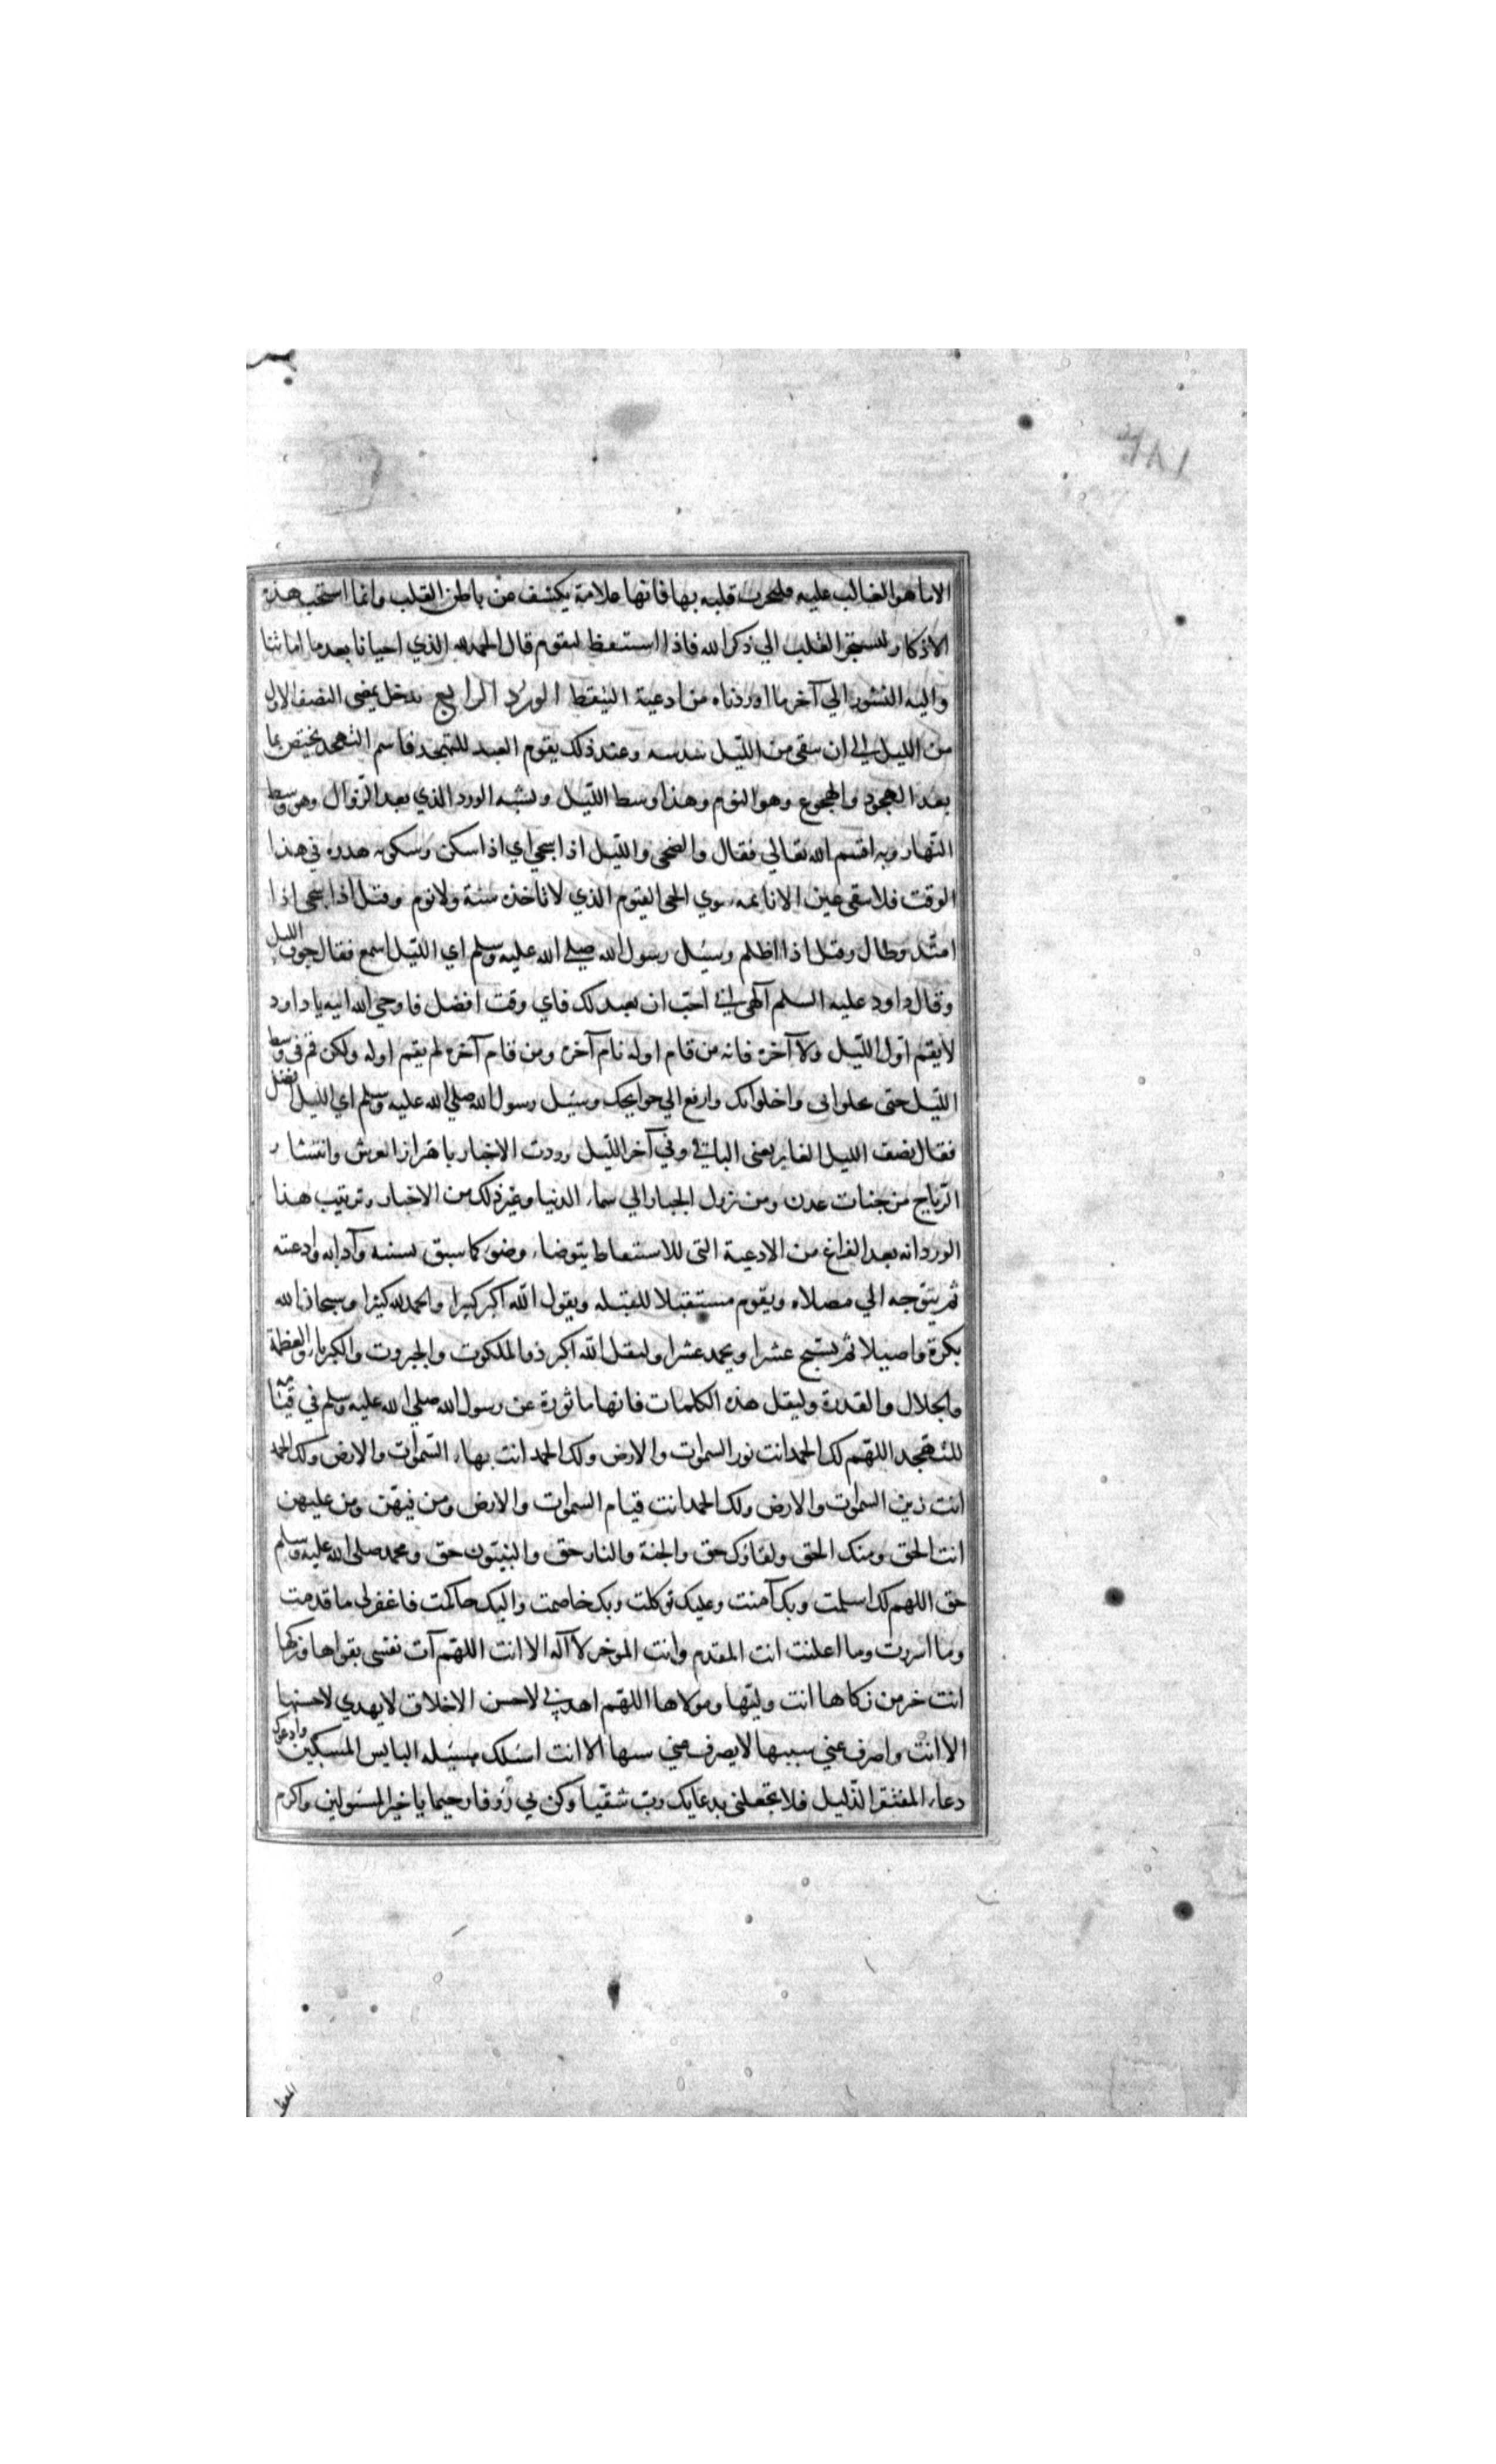 ١٨٢
الا ما هو الغالب عليه فليجرب قلبه بها فانها علامة يكشف عن باطن القلب وانما استحب هذه
الاذكار لتستجر القلب الي ذكر الله فاذا استيقظ ليقوم قال الحمد لله الذي احيانا بعد ما اماتنا
واليه النشور الي آخر ما اوردناه من ادعية التيقظ الورد الرابع يدخل بمضى النصف الاول
من الليل الى ان يبقى من الليل سدسه وعند ذلك يقوم العبد للتهجد فاسم التهجد يختص بما
بعد الهجود والهجوع وهو النوم وهذا وسط الليل ويشبه الورد الذي بعد الزوال وهو وسط
النهار وبه اقسم الله تعالي فقال والضحى والليل اذا سجى اي اذا سكن وسكونه هدوه في هذا
الوقت فلا يبقى عين الا نايمه سوي الحى القيوم الذي لا تاخذه سنة ولا نوم وقيل اذا سجى اذا
امتد وطال وقيل اذا اظلم وسئل رسول الله صلي الله عليه وسلم اي الليل اسمع فقال جوف الليل
وقال داود عليه السلم آلهى اني احب ان تعبد لك فاي وقت افضل فاوحي الله اليه يا داود
لا يقم اول الليل ولا آخره فانه من قام اوله نام آخره ومن قام آخره لم يقم اوله ولكن قم في وسط
الليل حتى تخلوا بى واخلوا بك وارفع الي حوايجك وسئل رسول الله صلي الله عليه وسلم اي الليل افضل
فقال نصف الليل الغابر يعنى الباقي وفي آخر الليل وردت الاخبار باهتزاز العرش وانتشار
الرياح من جنات عدن ومن نزول الجبار الي سماء الدنيا وغير ذلك من الاخبار وترتيب هذا
الورد انه بعد الفراغ من الادعية التى للاستيقاظ يتوضاء وضوء كما سبق بسننه وآدابه وادعيته
ثم يتوجه الي مصلاه ويقوم مستقبلا للقبله ويقول الله اكبر كبيرا والحمد لله كثيرا وسبحان الله
بكرة واصيلا ثم يسبح عشرا ويحمد عشرا وليقل الله اكبر ذو الملكوت والجبروت والكبرياء والعظمة
والجلال والقدرة وليقل هذه الكلمات فانها ماثورة عن رسول الله صلي الله عليه وسلم في قيامه
للتهجد اللهم لك الحمد انت نور السموات والارض ولك الحمد انت بهاء السموات والارض ولك الحمد
انت زين السموات والارض ولك الحمد انت قيام السموات والارض ومن فيهن ومن عليهن
انت الحق ومنك الحق ولقاؤك حق والجنة والنار حق والنبيون حق ومحمد صلى الله عليه وسلم
حق اللهم لك اسلمت وبك آمنت وعليك توكلت وبك خاصمت واليك حاكمت فاغفرلى ما قدمت
وما اسررت وما اعلنت انت المقدم وانت الموخر لا آله الا انت اللهم آت نفسى تقواها وزكها
انت خير من زكاها انت وليها ومولاها اللهم اهدني لاحسن الاخلاق لا يهدي لاحسنها
الا انت واصرف عني سييها لا يصرف عني سيها الا انت اسئلك مسئله البايس المسكين وادعوك
دعاء المفتقر الذليل فلا تجعلنى بدعايك رب شقيا وكن بي رؤفا رحيما يا خير المسئولين واكرم